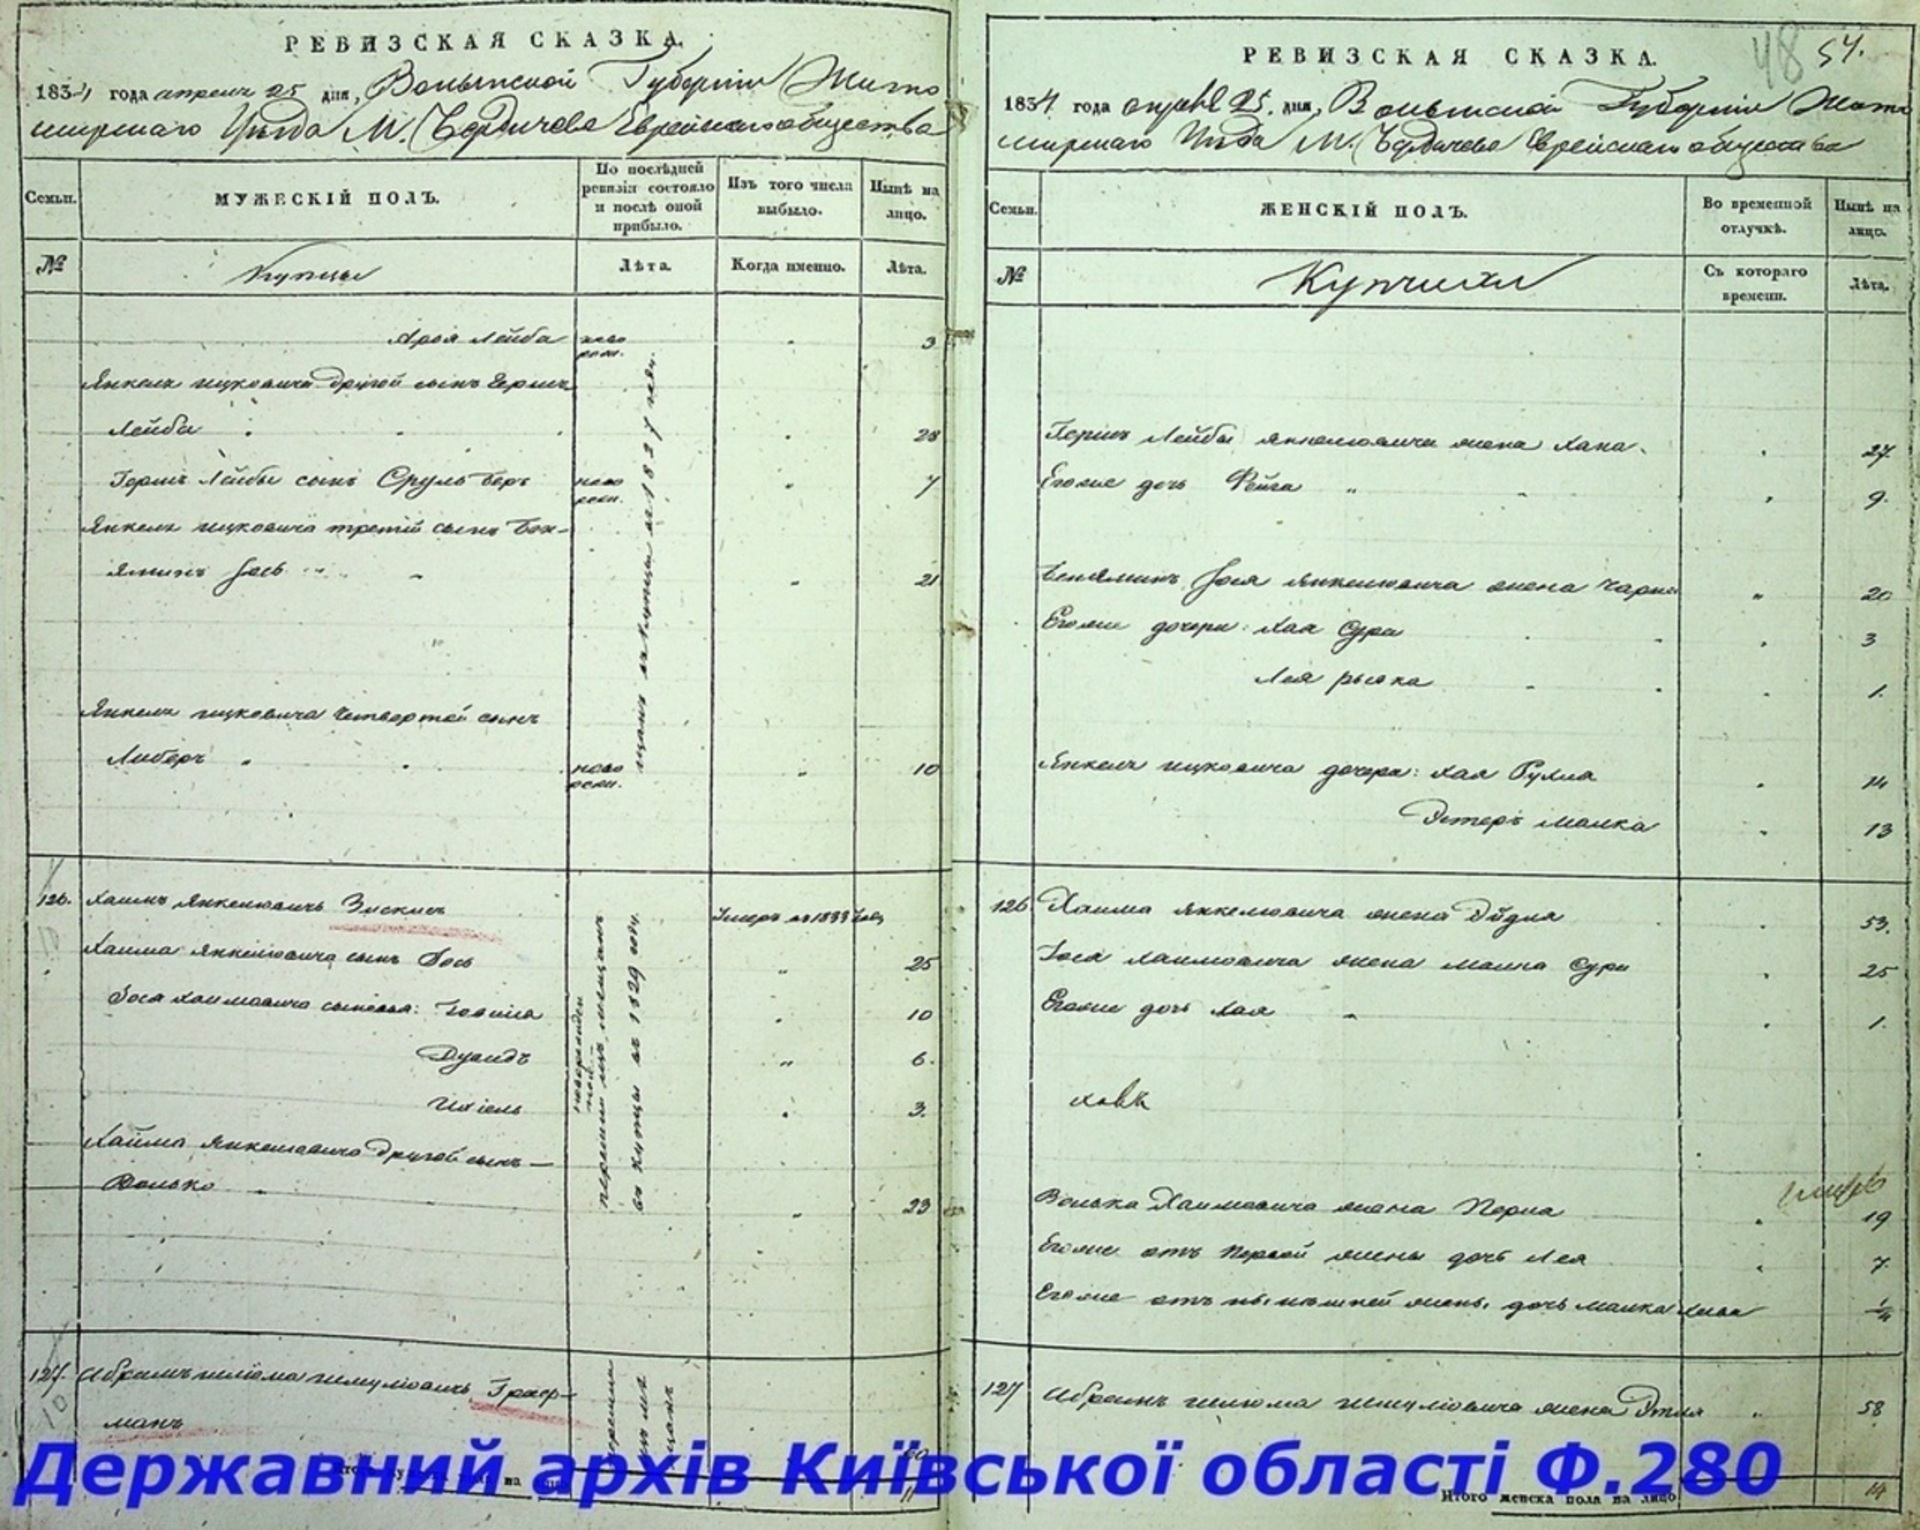 РЕВИЗСКАЯ СКАЗКА.
1834 года апреля 25 дня, Волынской Губернии Жито
мирскаго Уезда М. Бердичева Еврейскаго общества
Семьи.
МУЖЕСКІЙ ПОЛЪ.
По послѣдней ревизіи состояло и послѣ оной прибыло.
Изъ того числа выбыло.
Нынѣ на лицо.
№
Купцы
Лѣта.
Когда именно.
Лѣта.
Арон Лейба ново рож. 3
Янкеля Ицковича другой сынъ Герш
Лейба 28
Герш Лейбы сынъ Сруль Бер ново рож. 7
Янкеля Ицковича третій сынъ Бен-
яминъ Іось 21
Янкеля Ицковича четвертой сынъ
Либеръ ново рожд. 10
126. Хаимъ Янкелювичъ Зискис Умеръ въ 1833 году
Хаима Янкелювича сынъ Іось 25
Іося Хаимовича сыновья: 10
Дувидъ 6.
Ихіель 3.
Хаима Янкелювича другой сынъ —
Волько 23
перешли изъ мещанъ
въ купцы въ 1829 году.
127. Абрамъ Шлиома Шмулювичъ Графр-
манъ 60
11
РЕВИЗСКАЯ СКАЗКА.
48 54.
1834 года апреля 25. дня, Волынской Губернии Жито
мирскаго Уезда М. Бердичева Еврейскаго общества
Семьи.
ЖЕНСКІЙ ПОЛЪ.
Во временной отлучкѣ.
Нынѣ на лицо.
№
Купчихи
Съ котораго времени.
Лѣта.
Герш Лейбы Янкелювича жена Хана 27
Егоже дочь Фейга 9.
Беняминъ Іося Янкелювича жена Чарна 20
Егоже дочери: Хая Сура 3
Лея 1.
Янкеля Ицковича дочери: Хая Рухля 14
Эстеръ Малка 13
126 Хаима Янкелювича жена Эйдля 53.
Іося Хаимовича жена Малка Сура 25
Егоже дочь Хая 1.
Волька Хаимовича жена Перла 19
Егоже отъ первой жены дочь Лея 7
Егоже отъ нынешней жены дочь Малка
127 Абрамъ Шлиома Шмулювича жена Этля 58
Итого женска пола на лицо 14
Державний архів Київської області Ф.280